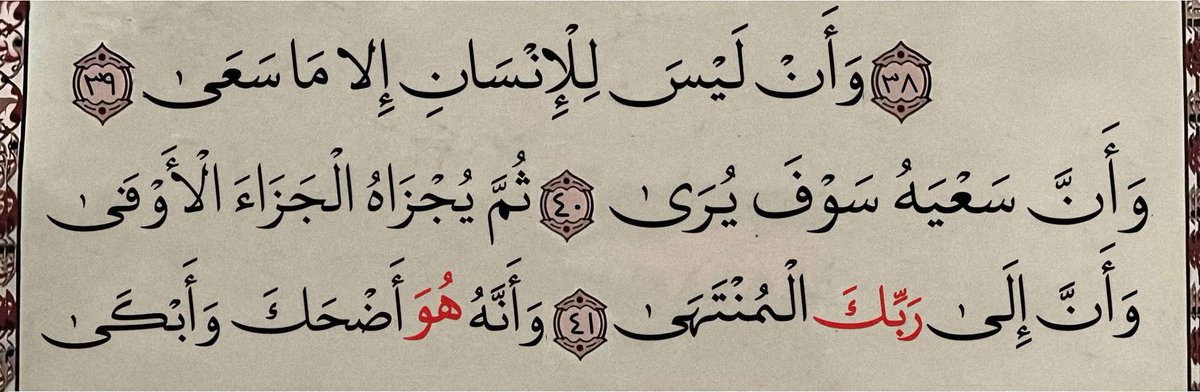 ﴿٣٨﴾ وَأَنْ لَيْسَ لِلْإِنْسَانِ إِلا مَا سَعَىٰ ﴿٣٩﴾
وَأَنَّ سَعْيَهُ سَوْفَ يُرَىٰ ﴿٤٠﴾ ثُمَّ يُجْزَاهُ الْجَزَاءَ الْأَوْفَىٰ
وَأَنَّ إِلَىٰ رَبِّكَ الْمُنْتَهَىٰ ﴿٤١﴾ وَأَنَّهُ هُوَ أَضْحَكَ وَأَبْكَىٰ